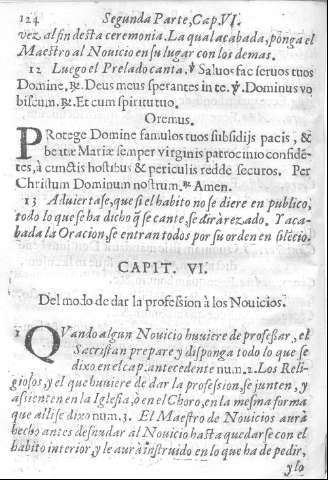 124 Segunda Parte, Cap. VI.
vez al fin desta ceremonia. La qual acabada, ponga el
Maestro al Novicio en su lugar con los demas.
12 Luego el Prelado canta. ℣ Saluos fac seruos tuos
Domine. ℟. Deus meus sperantes in te. ℣. Dominus vo
biscum. ℟. Et cum spiritu tuo.
Oremus.
PRotege Domine famulos tuos subsidijs pacis, &
beatæ Mariæ semper virginis patrocinio confidẽ-
tes, à cunctis hostibus & periculis redde securos. Per
Christum Dominum nostrum. ℟. Amen.
13 Aduiertase, que si el habito no se diere en publico,
todo lo que se ha dicho q̃ se cante, se dirà rezado. Y aca-
bada la Oracion, se entran todos por su orden en silẽcio.
CAPIT. VI.
Del modo de dar la profession à los Nouicios.
1 QVando algun Novicio huuiere de professar, el
Sacristan prepare y disponga todo lo que se
dixo en el cap. antecedente num. 2. Los Reli-
giosos, y el que huuiere de dar la profession, se junten, y
assienten en la Iglesia, ò en el Choro, en la mesma forma
que alli se dixo num. 3. El Maestro de Novicios aurà
hecho antes desnudar al Novicio hasta quedarse con el
habito interior, y le aurà instruido en lo que ha de pedir,
y lo